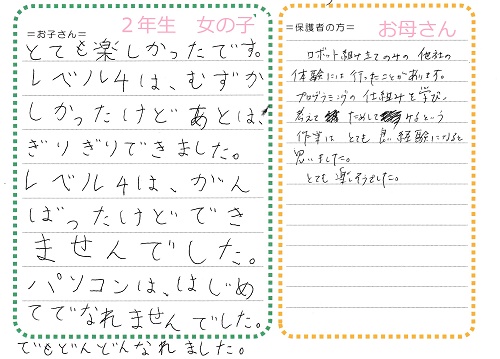 ＝お子さん＝
２年生　女の子
とても楽しかったです。
レベル4は、むずか
しかったけどあとは、
ぎりぎりできました。
レベル4は、がん
ばったけどでき
ませんでした。
パソコンは、はじめ
てでなれませんでした。
でもどんどんなれました。
＝保護者の方＝
お母さん
ロボット組み立てのみの 他社の
体験には行ったことがあります。
プログラミングの仕組みを学び、
考えて ためして みるという
作業は とても 良い経験になると
思いました。
とても楽しそうでした。